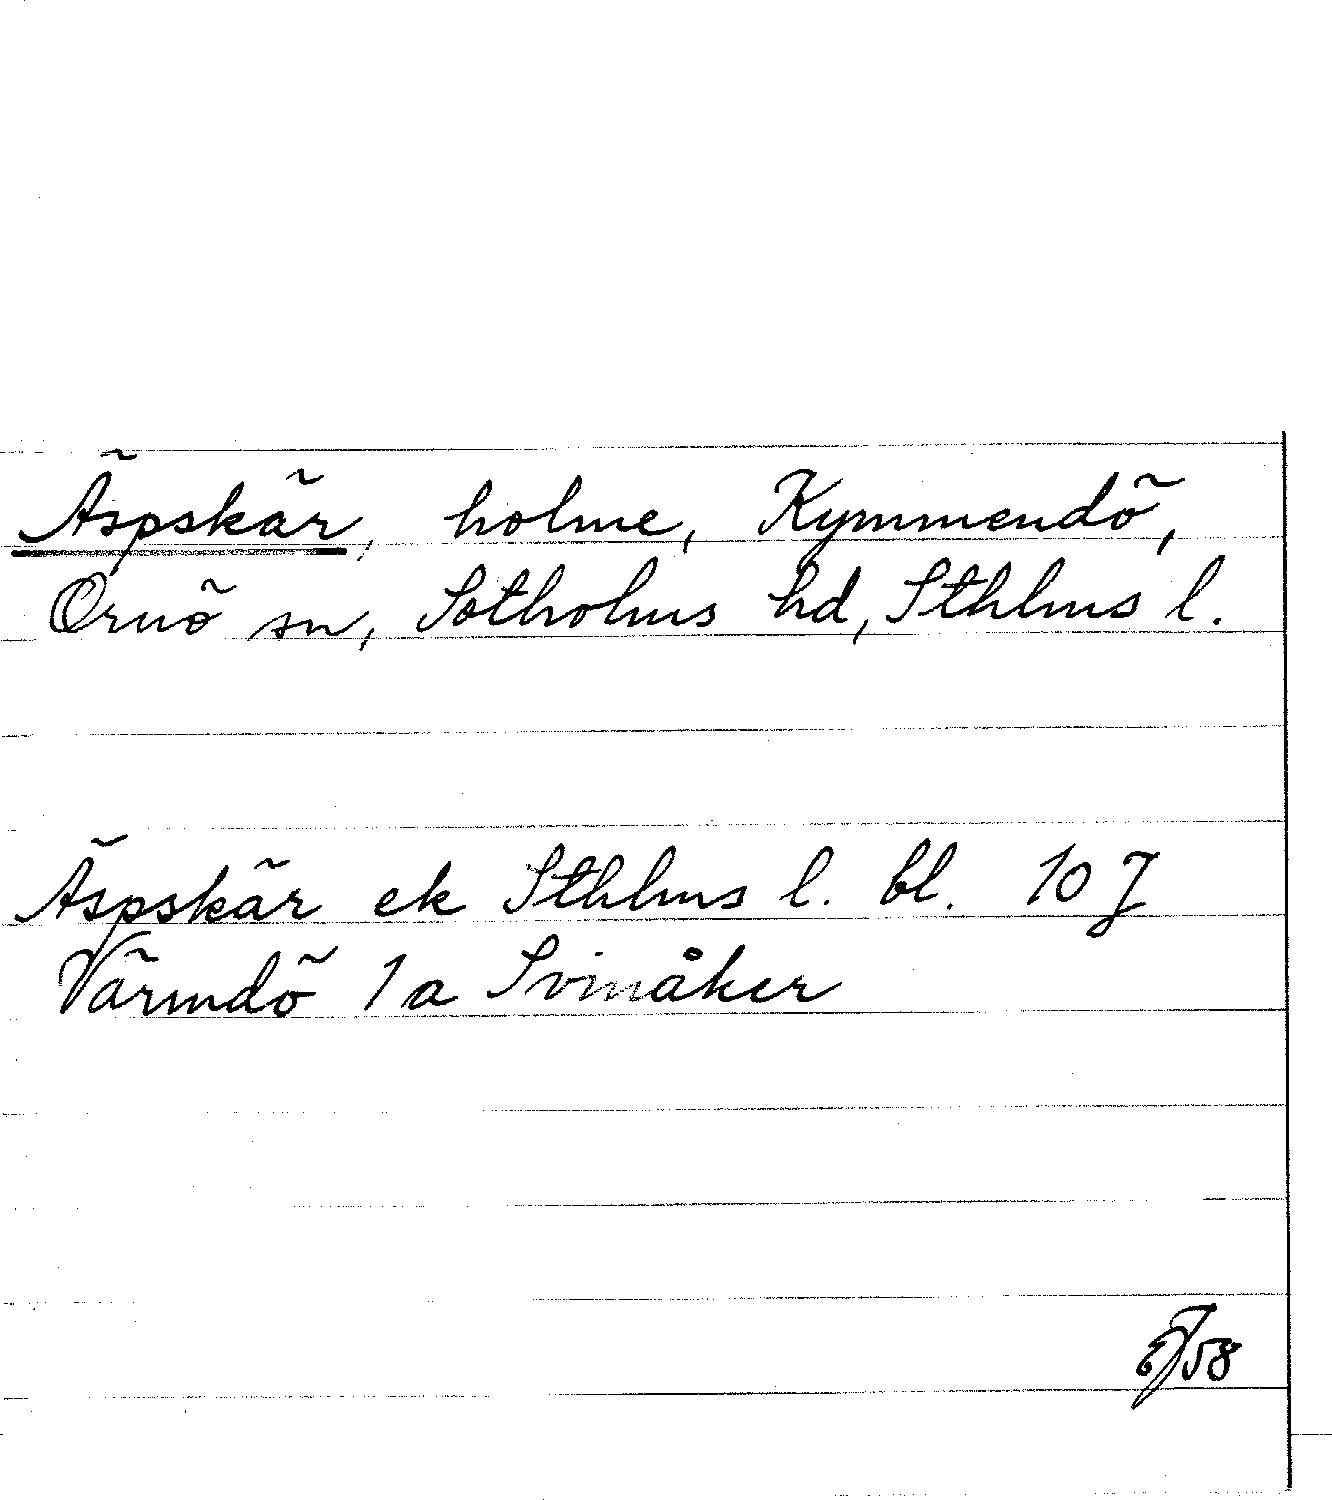 Äspskär, holme, Kymmendö,
Ornö sn, Sotholms hd, Sthlms l.
Äspskär ek Sthlms l. bl. 10 J
Värmdö 1 a Svinåker
EJ 58